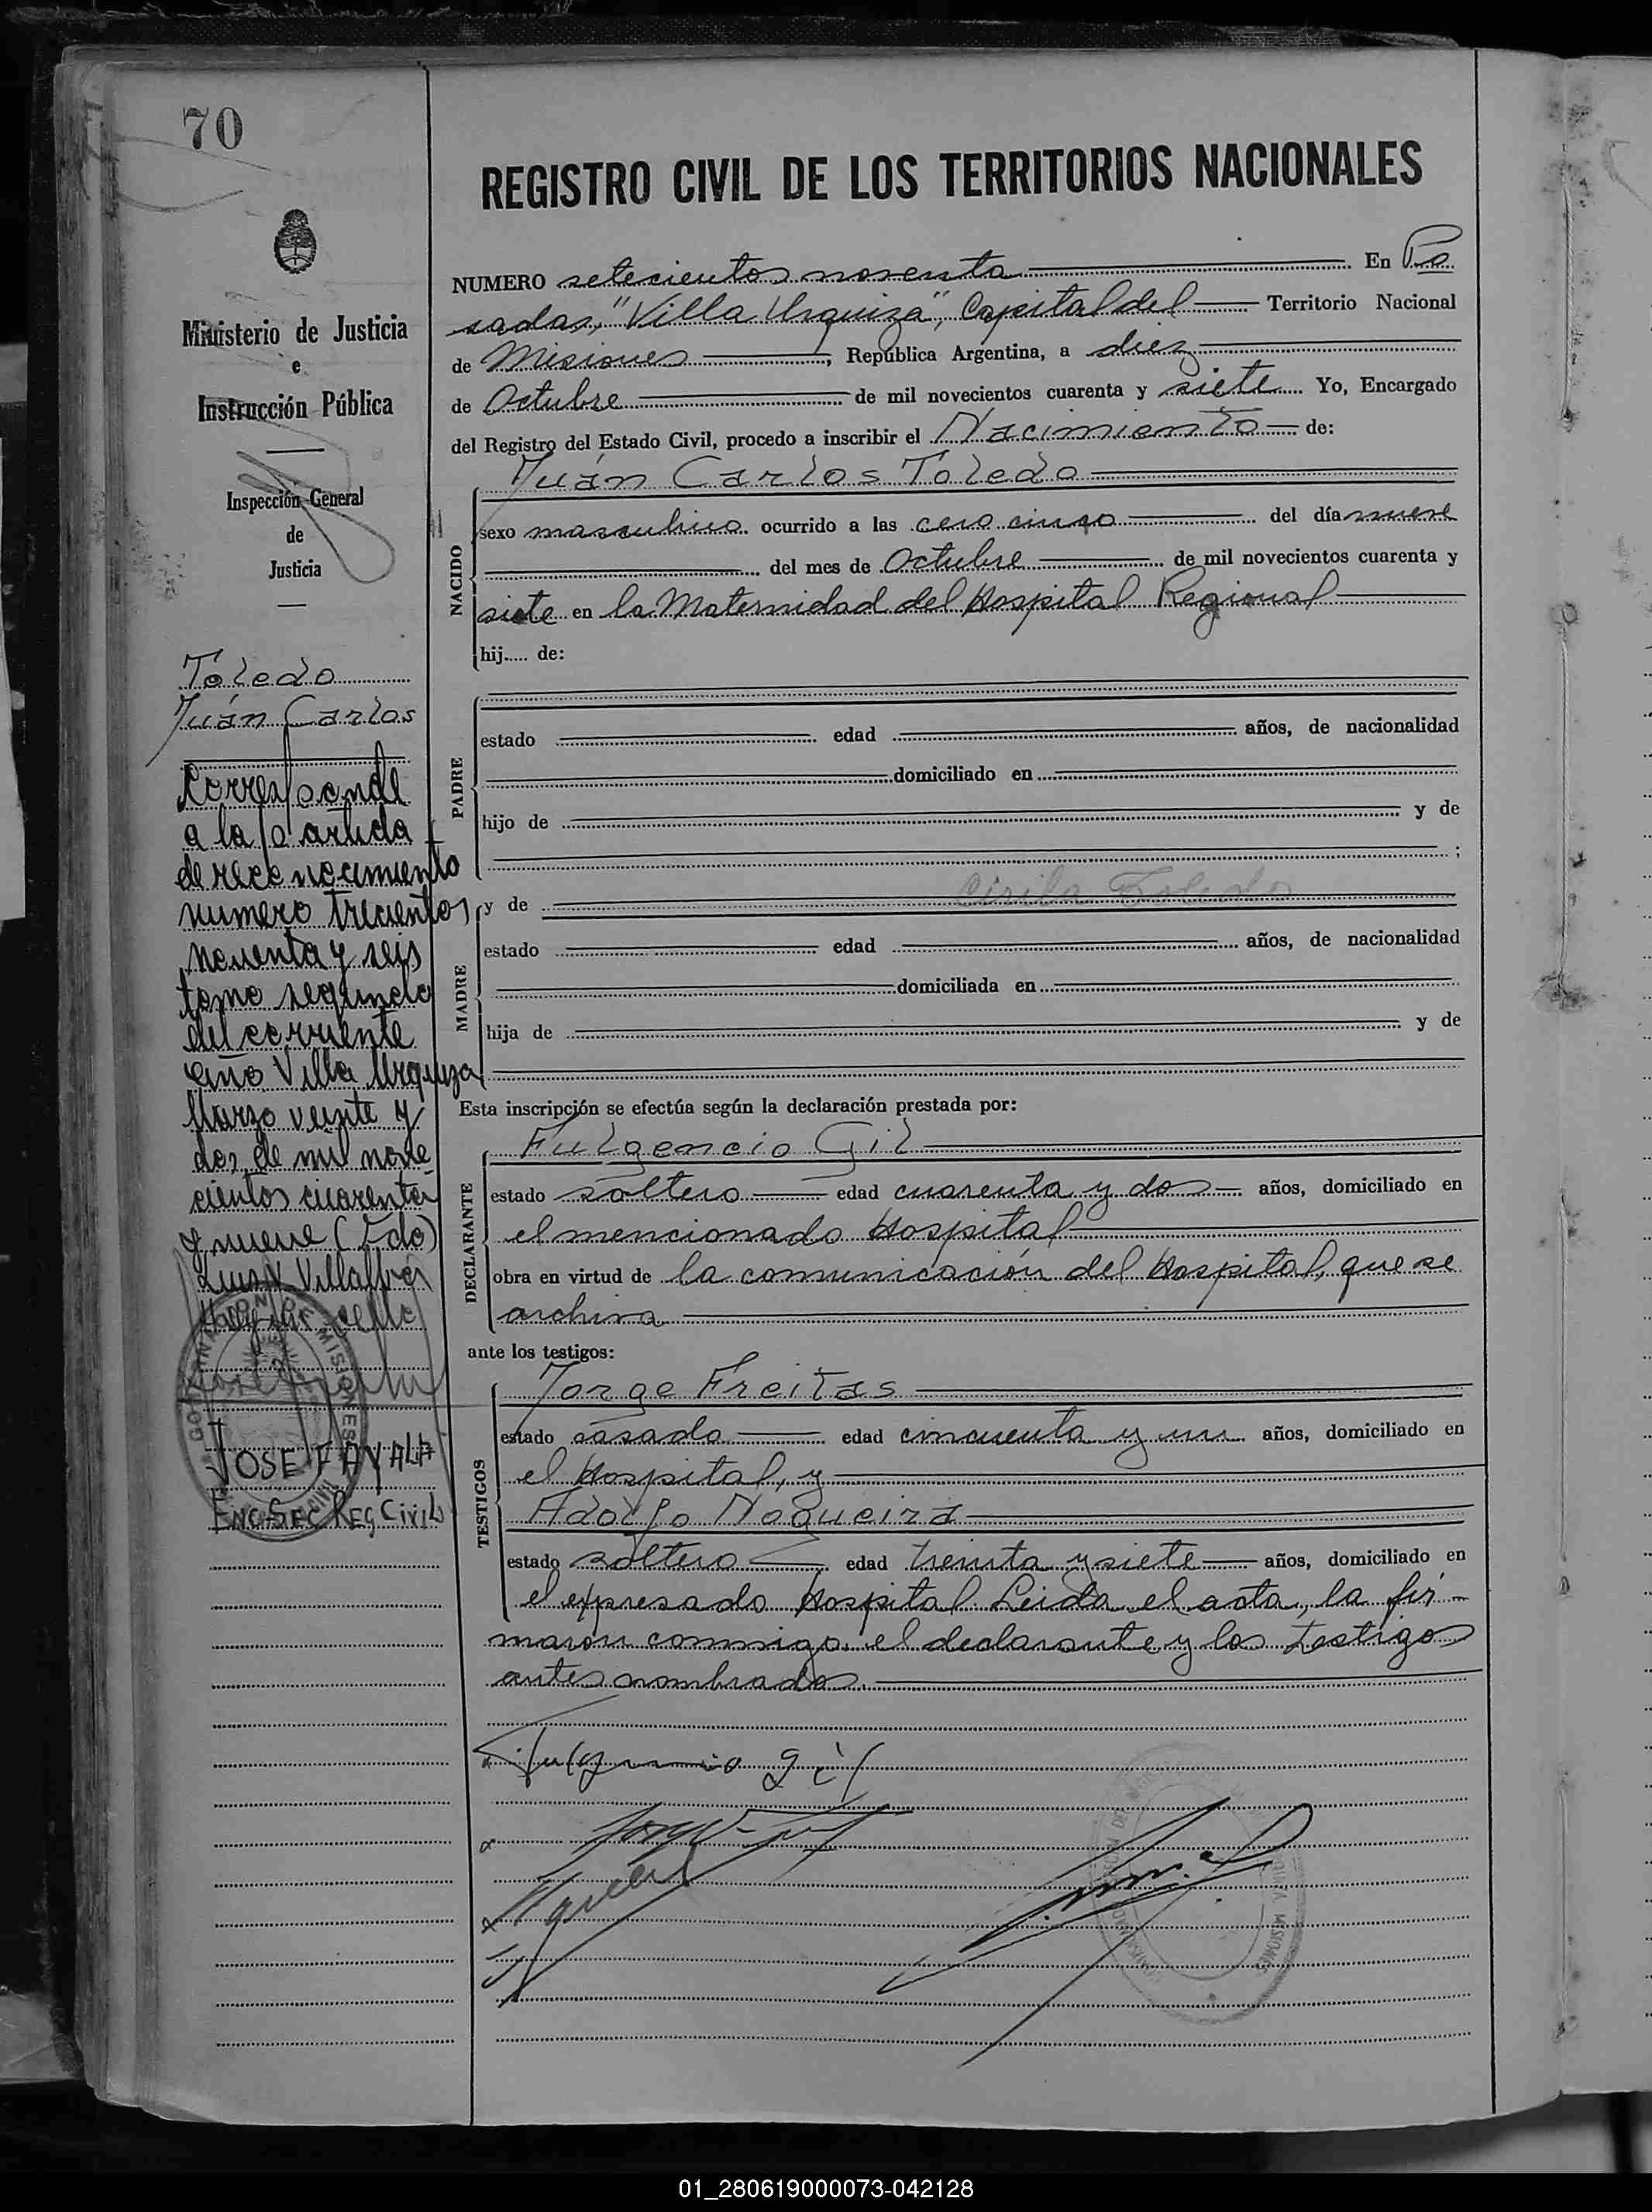 70
REGISTRO CIVIL DE LOS TERRITORIOS NACIONALES
Ministerio de Justicia
e
Instrucción Pública
Inspección General
de
Justicia
Toledo
Juán Carlos
Corresponde
a la partida
de reconocimiento
numero trecientos
noventa y seis
tomo segundo
del corriente
año Villa Urquiza
Marzo veinte y
dos de mil nove
cientos cuarenta
y nueve (Fdo)
Luis V. Villalba
Hay un sello
JOSE F AYALA
ENC. SEC REG CIVIL
NUMERO setecientos noventa En Po
sadas, "Villa Urquiza", Capital del Territorio Nacional
de Misiones, República Argentina, a diez
de Octubre de mil novecientos cuarenta y siete Yo, Encargado
del Registro del Estado Civil, procedo a inscribir el Nacimiento de:
NACIDO
Juán Carlos Toledo
sexo masculino ocurrido a las cero cinco del día nueve
del mes de Octubre de mil novecientos cuarenta y
siete en la Maternidad del Hospital Regional
hij.... de:
PADRE
estado edad años, de nacionalidad
domiciliado en
hijo de y de
;
MADRE
y de Cirila Toledo
estado edad años, de nacionalidad
domiciliada en
hija de y de
Esta inscripción se efectúa según la declaración prestada por:
DECLARANTE
Fulgencio Gil
estado soltero edad cuarenta y dos años, domiciliado en
el mencionado Hospital
obra en virtud de la comunicación del Hospital, que se
archiva
ante los testigos:
TESTIGOS
Jorge Freitas
estado casado edad cincuenta y un años, domiciliado en
el Hospital, y
Adolfo Nogueira
estado soltero edad treinta y siete años, domiciliado en
el expresado Hospital. Leida el acta, la fir-
maron conmigo el declarante y los testigos
antes nombrados.
Fulgencio Gil
01_280619000073-042128